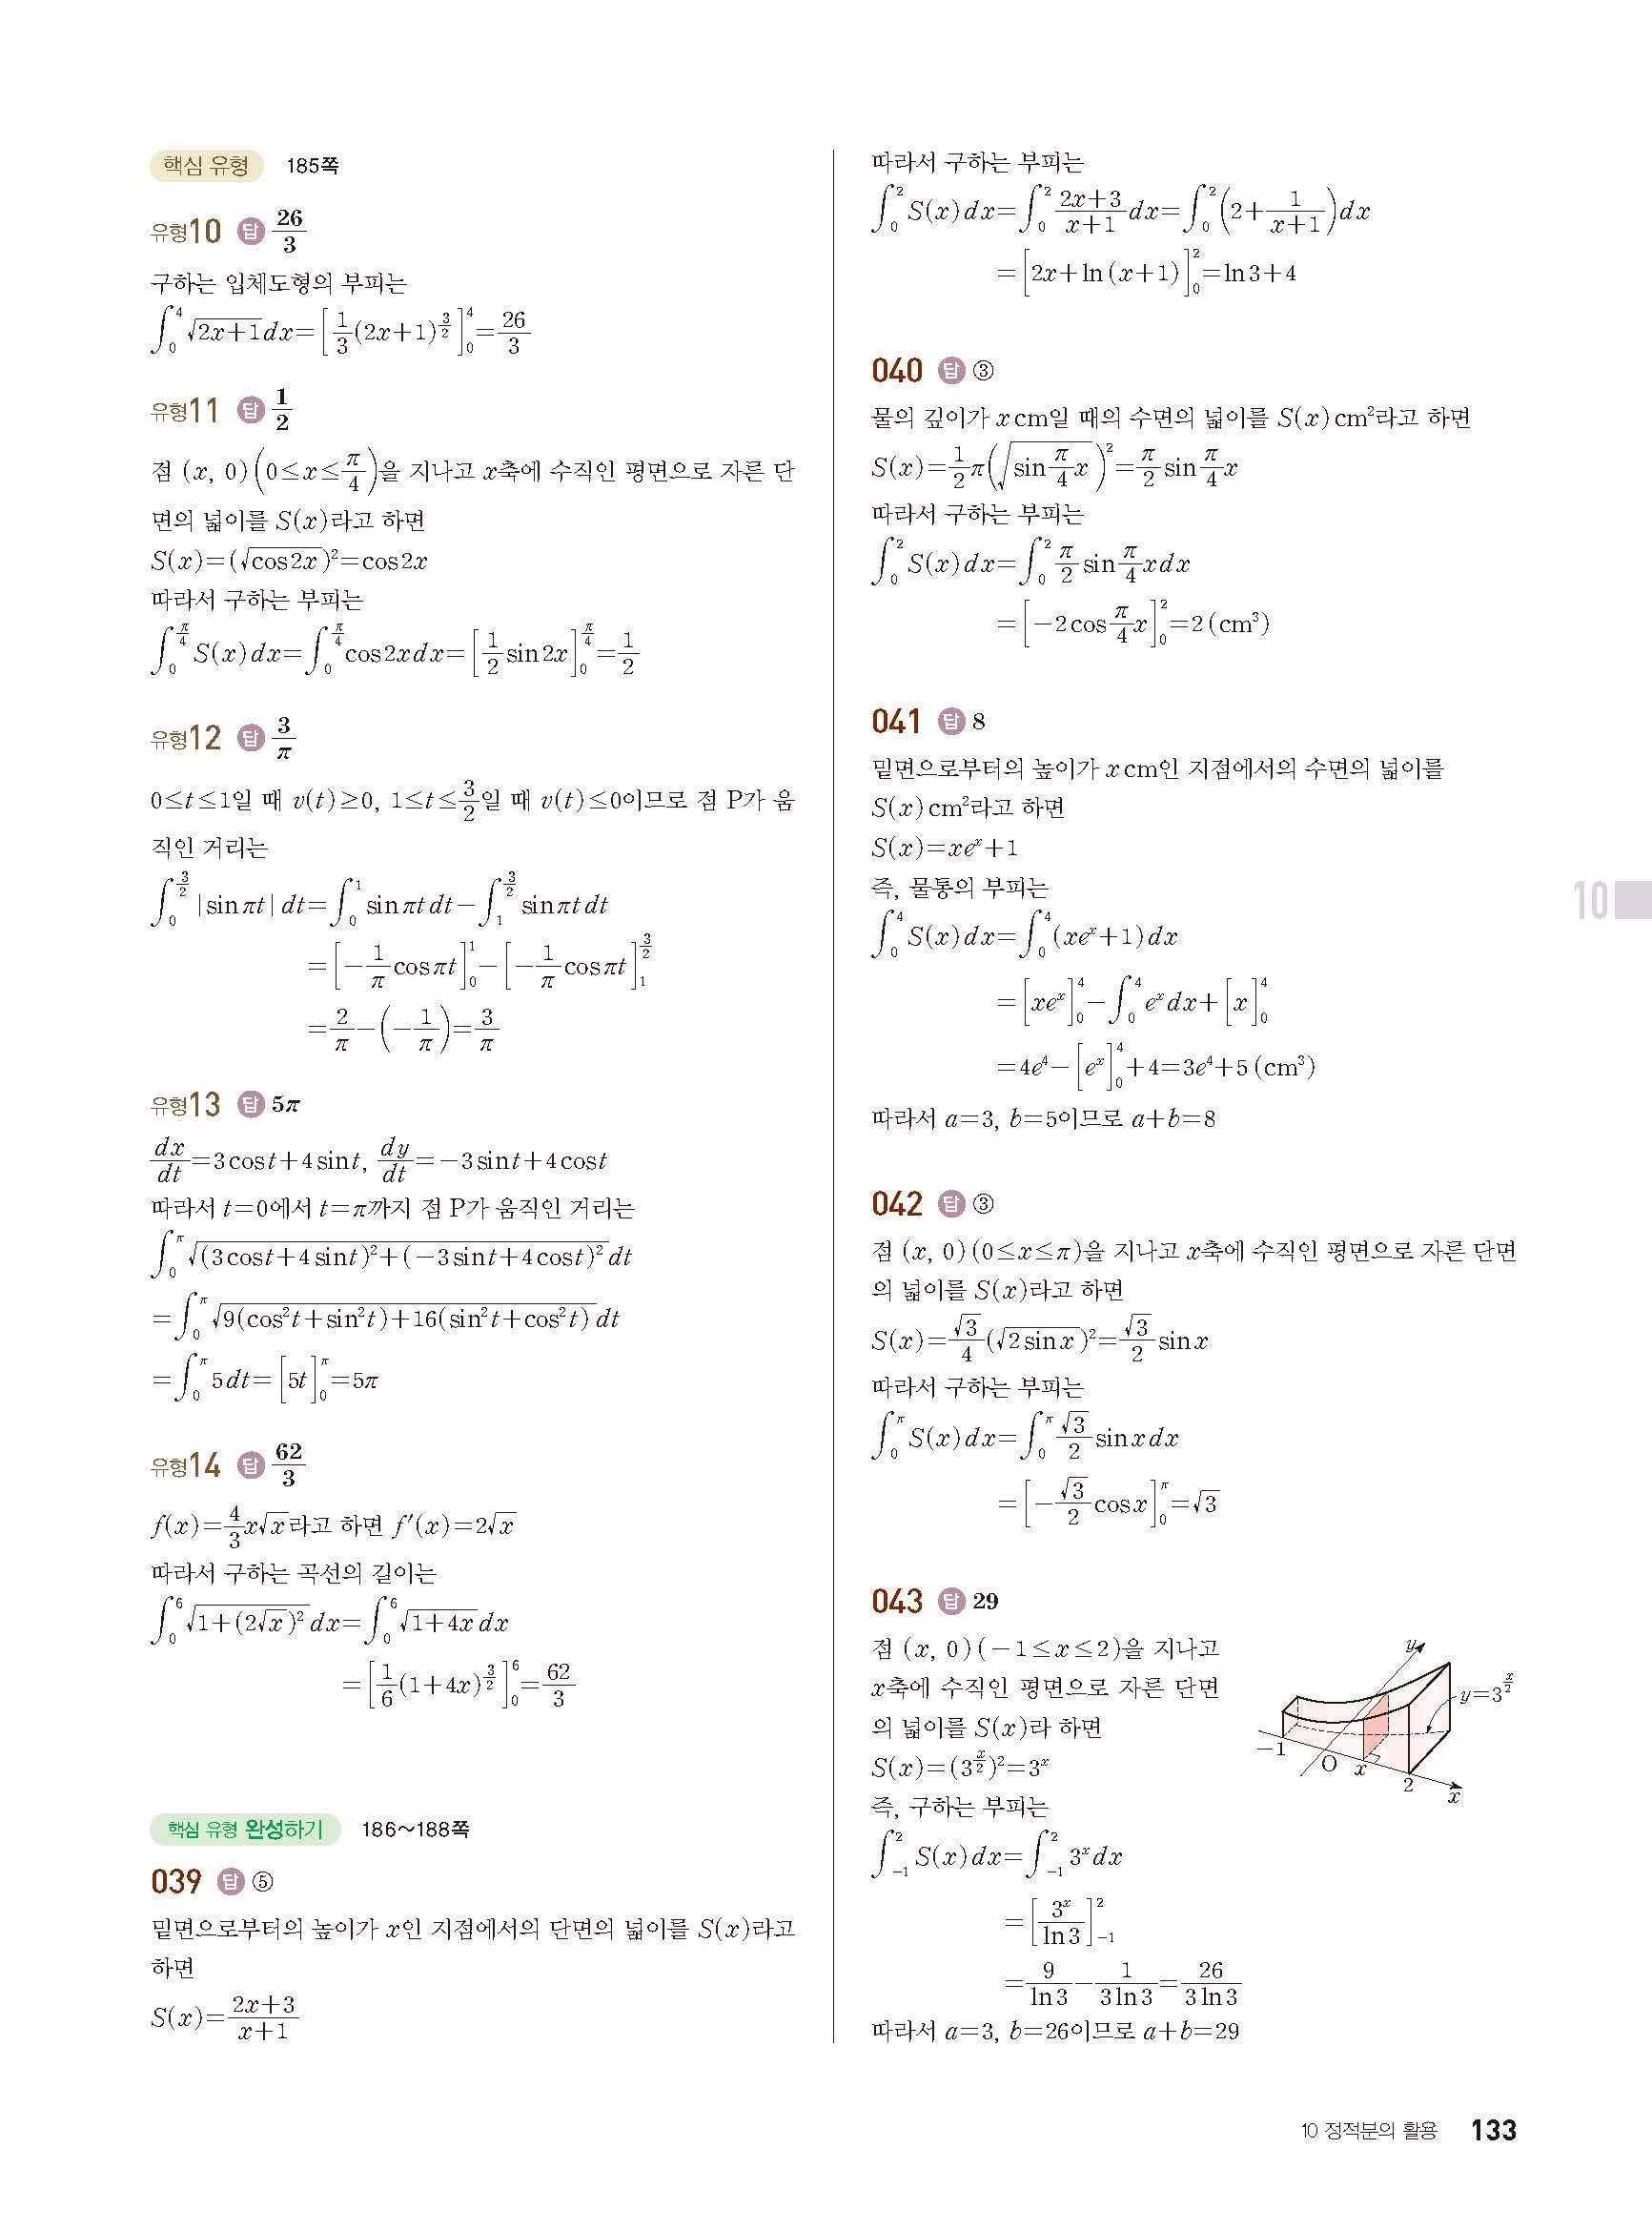 핵심 유형 185쪽
유형10 답 26/3
구하는 입체도형의 부피는
∫₀⁴ √(2x+1) dx=[1/3(2x+1)^(3/2)]₀⁴=26/3
유형11 답 1/2
점 (x, 0)(0≤x≤π/4)을 지나고 x축에 수직인 평면으로 자른 단
면의 넓이를 S(x)라고 하면
S(x)=(√(cos2x))²=cos2x
따라서 구하는 부피는
∫₀^(π/4) S(x)dx=∫₀^(π/4) cos2xdx=[1/2 sin2x]₀^(π/4)=1/2
유형12 답 3/π
0≤t≤1일 때 v(t)≥0, 1≤t≤3/2일 때 v(t)≤0이므로 점 P가 움
직인 거리는
∫₀^(3/2) |sinπt|dt=∫₀¹ sinπtdt-∫₁^(3/2) sinπtdt
=[-1/π cosπt]₀¹-[-1/π cosπt]₁^(3/2)
=2/π-(-1/π)=3/π
유형13 답 5π
dx/dt=3cost+4sint, dy/dt=-3sint+4cost
따라서 t=0에서 t=π까지 점 P가 움직인 거리는
∫₀^π √((3cost+4sint)²+(-3sint+4cost)²) dt
=∫₀^π √(9(cos²t+sin²t)+16(sin²t+cos²t)) dt
=∫₀^π 5dt=[5t]₀^π=5π
유형14 답 62/3
f(x)=4/3 x√x라고 하면 f′(x)=2√x
따라서 구하는 곡선의 길이는
∫₀⁶ √(1+(2√x)²) dx=∫₀⁶ √(1+4x) dx
=[1/6(1+4x)^(3/2)]₀⁶=62/3
핵심 유형 완성하기 186~188쪽
039 답 ⑤
밑면으로부터의 높이가 x인 지점에서의 단면의 넓이를 S(x)라고
하면
S(x)=(2x+3)/(x+1)
따라서 구하는 부피는
∫₀² S(x)dx=∫₀² (2x+3)/(x+1) dx=∫₀² (2+1/(x+1))dx
=[2x+ln(x+1)]₀²=ln3+4
040 답 ③
물의 깊이가 x cm일 때의 수면의 넓이를 S(x) cm²라고 하면
S(x)=1/2 π(√(sin π/4 x))²=π/2 sin π/4 x
따라서 구하는 부피는
∫₀² S(x)dx=∫₀² π/2 sin π/4 xdx
=[-2cos π/4 x]₀²=2(cm³)
041 답 8
밑면으로부터의 높이가 x cm인 지점에서의 수면의 넓이를
S(x) cm²라고 하면
S(x)=xeˣ+1
즉, 물통의 부피는
∫₀⁴ S(x)dx=∫₀⁴ (xeˣ+1)dx
=[xeˣ]₀⁴-∫₀⁴ eˣdx+[x]₀⁴
=4e⁴-[eˣ]₀⁴+4=3e⁴+5(cm³)
따라서 a=3, b=5이므로 a+b=8
042 답 ③
점 (x, 0)(0≤x≤π)을 지나고 x축에 수직인 평면으로 자른 단면
의 넓이를 S(x)라고 하면
S(x)=√3/4 (√(2sinx))²=√3/2 sinx
따라서 구하는 부피는
∫₀^π S(x)dx=∫₀^π √3/2 sinxdx
=[-√3/2 cosx]₀^π=√3
043 답 29
점 (x, 0)(-1≤x≤2)을 지나고
x축에 수직인 평면으로 자른 단면
의 넓이를 S(x)라 하면
S(x)=(3^(x/2))²=3ˣ
즉, 구하는 부피는
∫₋₁² S(x)dx=∫₋₁² 3ˣdx
=[3ˣ/ln3]₋₁²
=9/ln3-1/(3ln3)=26/(3ln3)
따라서 a=3, b=26이므로 a+b=29
y
y=3^(x/2)
-1
O
x
2
x
10
10 정적분의 활용 133